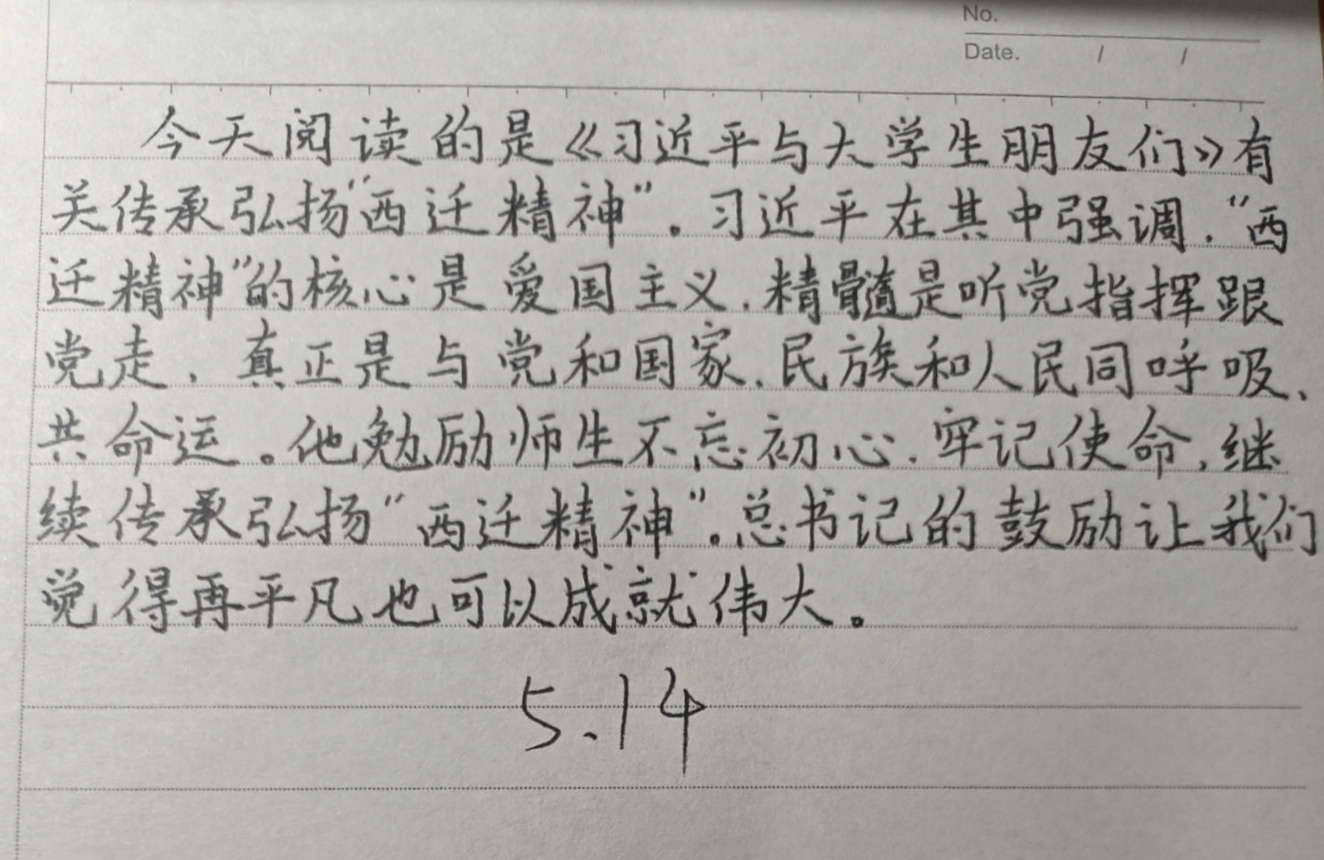 No.
Date. / /
今天阅读的是《习近平与大学生朋友们》有
关传承弘扬“西迁精神”。习近平在其中强调，“西
迁精神”的核心是爱国主义，精髓是听党指挥跟
党走，真正是与党和国家、民族和人民同呼吸、
共命运。他勉励师生不忘初心、牢记使命，继
续传承弘扬“西迁精神”。总书记的鼓励让我们
觉得再平凡也可以成就伟大。
5.14